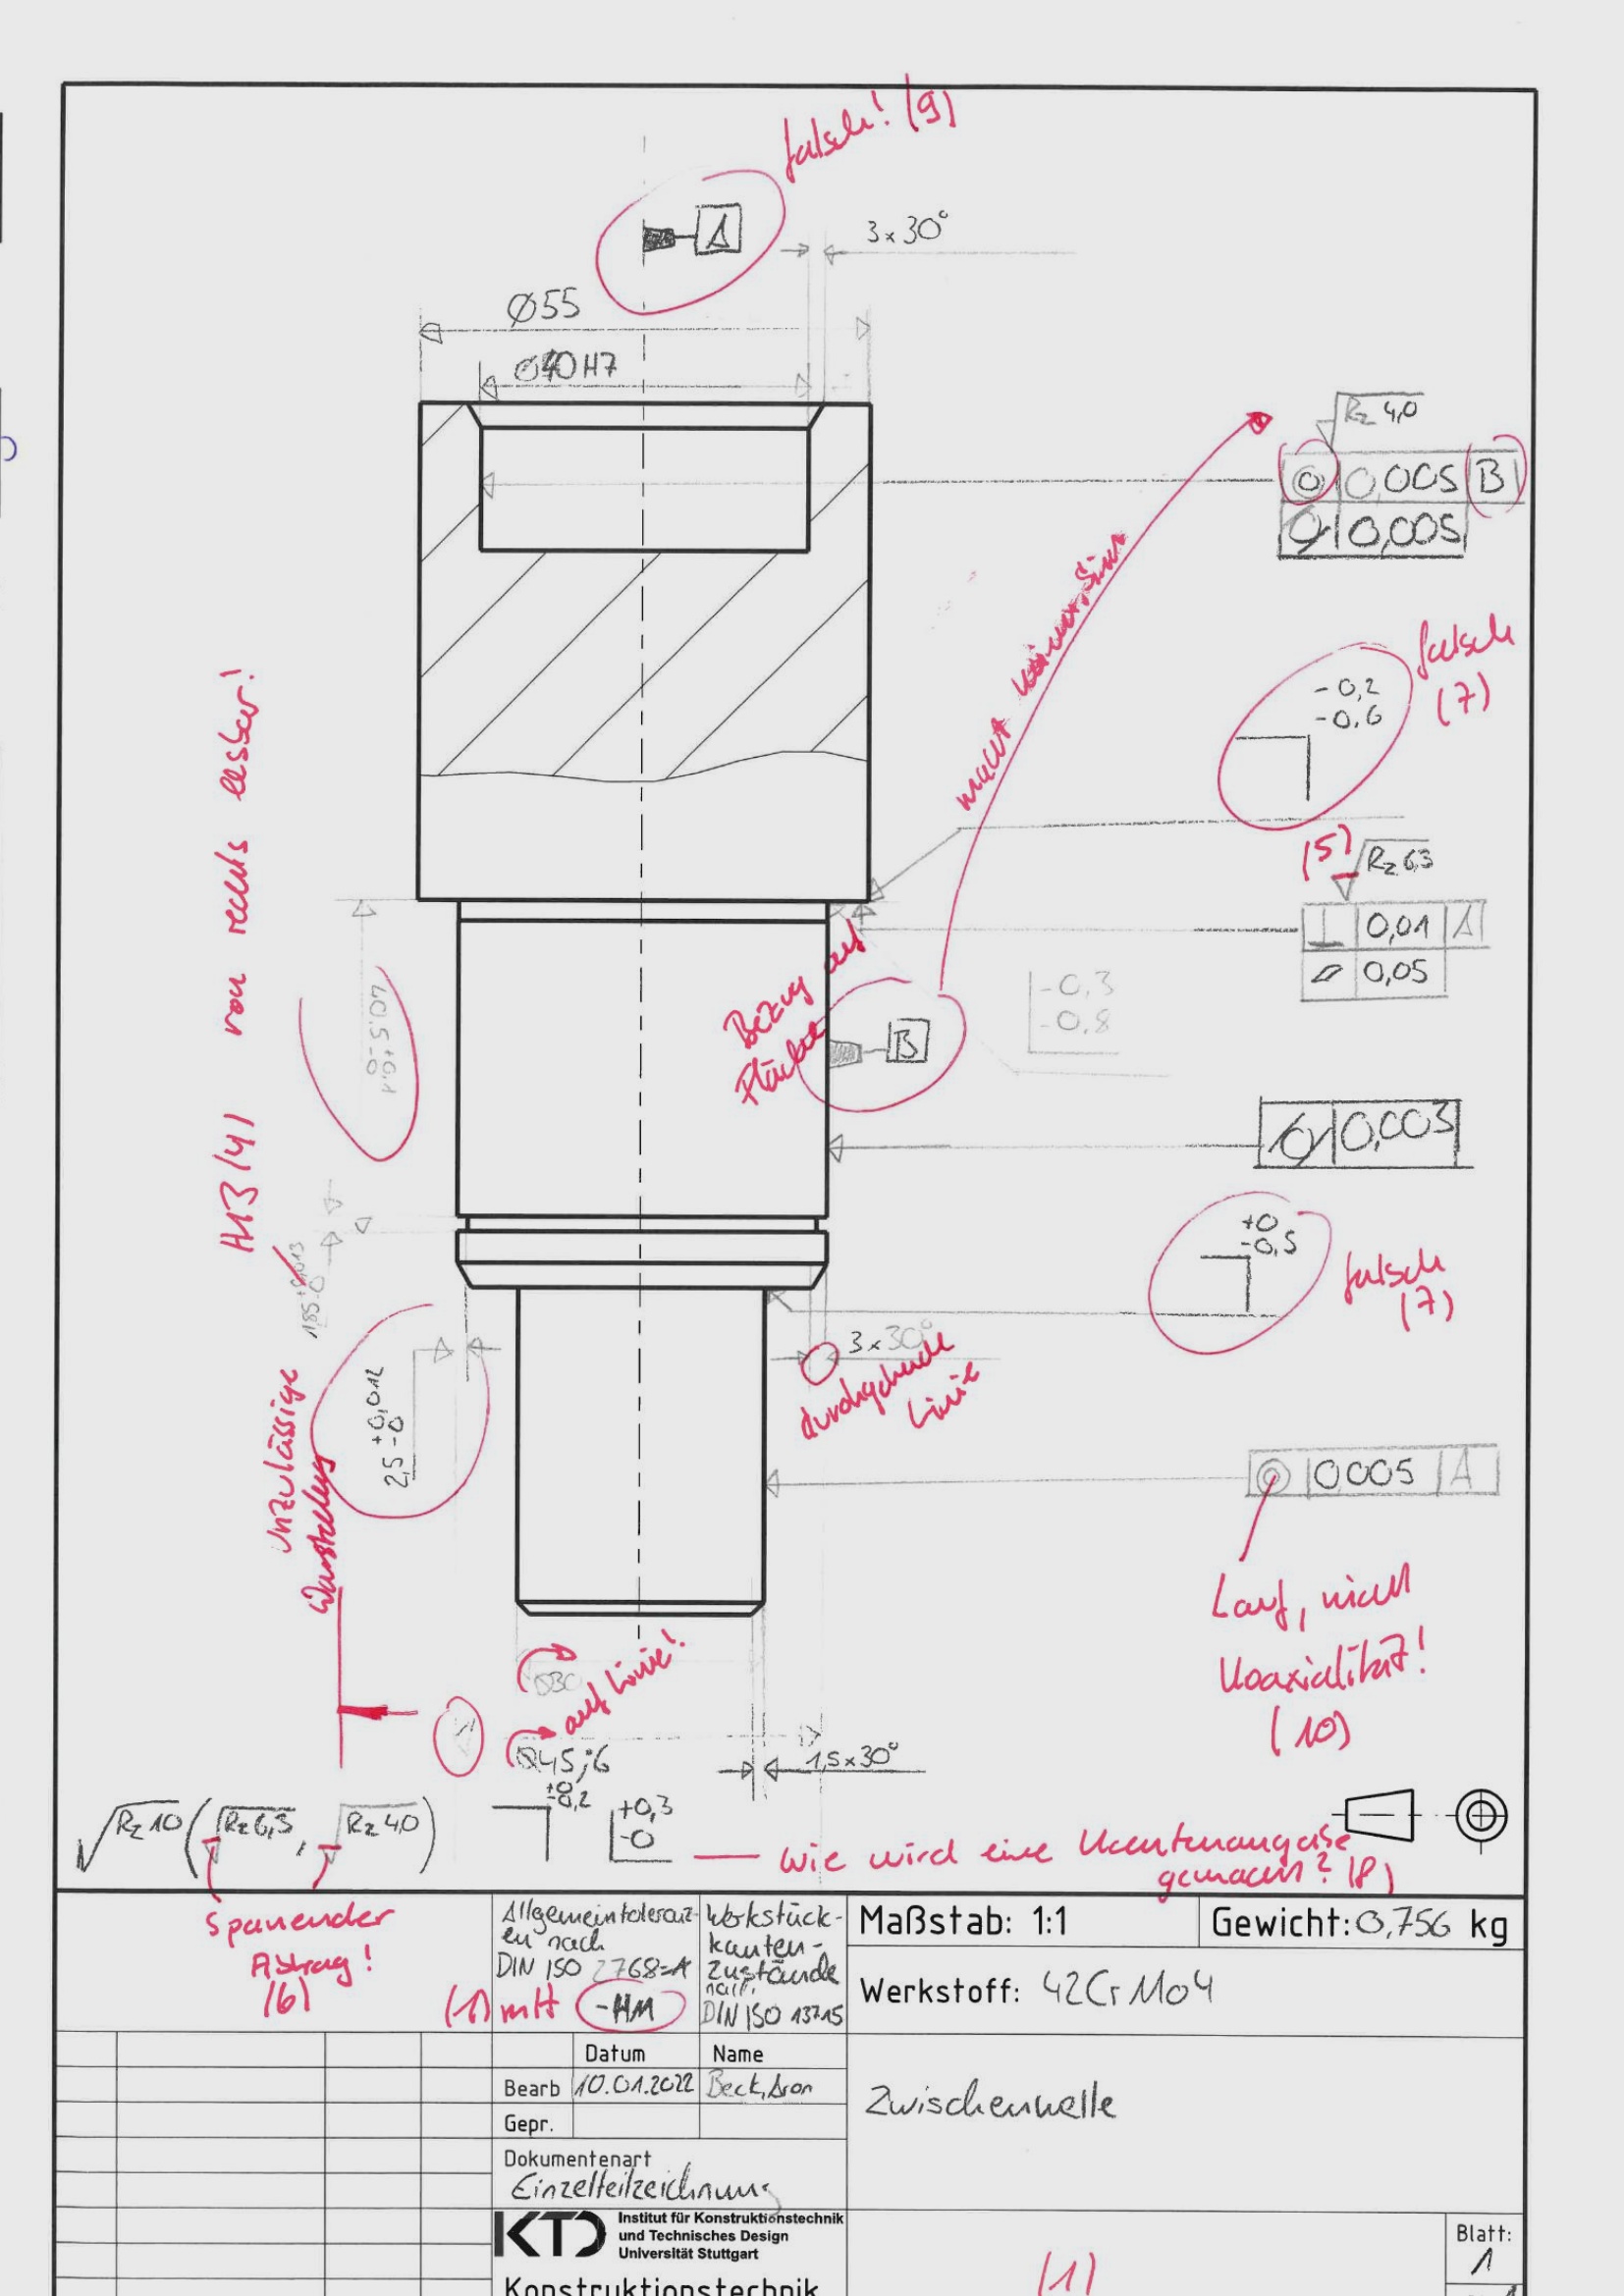 falsch! (9)
A
3x30°
Ø55
Ø40H7
Rz 4,0
◎ 0,005 B
⌭ 0,005
macht keinen Sinn
falsch
(7)
-0,2
-0,6
(5)
Rz 6,3
⊥ 0,01 A
⏥ 0,05
von rechts lesbar!
40,5 +0,1
-0
Bezug auf
Fläche
B
-0,3
-0,8
⌭ 0,003
H13 (4)
1,85
-0
+0
-0,5
falsch
(7)
3x30°
durchgehende
Linie
Unzulässige
Darstellung
2,5 +0,012
-0
◎ 0,005 A
Lauf, nicht
Koaxialität!
(10)
Ø30
auf Linie!
Ø45j6
1,5x30°
Rz 10 ( Rz 6,3 , Rz 4,0 )
+0
-0,2
+0,3
-0
wie wird eine Kantenangabe
gemacht? (8)
Spanender
Abtrag!
(6)
(1) mH
Allgemeintoleranz-
en nach
DIN ISO 2768
-HM
Werkstück-
kanten-
zustände
nach
DIN ISO 13715
Maßstab: 1:1
Gewicht: 0,756 kg
Werkstoff: 42CrMo4
Datum Name
Bearb 10.01.2022 Beck, Aron
Gepr.
Zwischenwelle
Dokumentenart
Einzelteilzeichnung
KTD
Institut für Konstruktionstechnik
und Technisches Design
Universität Stuttgart
Konstruktionstechnik
(1)
Blatt:
1